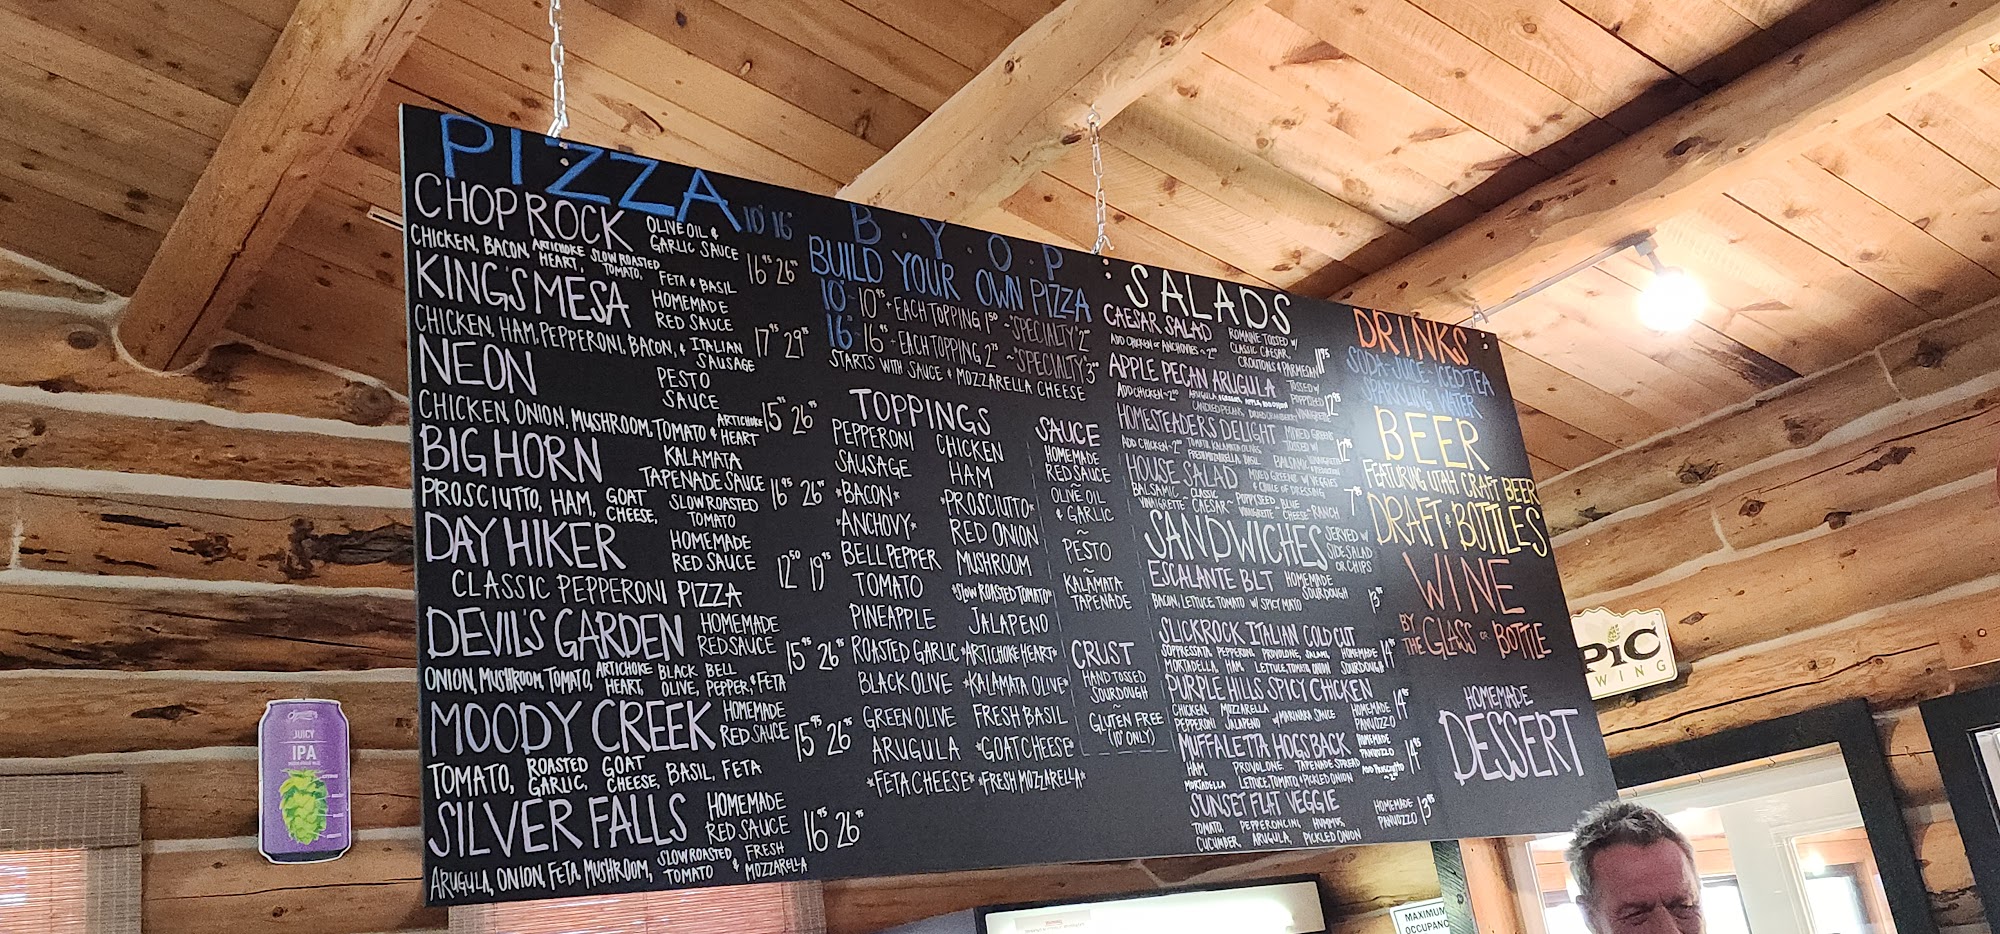 PIZZA 10" 16"
CHOP ROCK OLIVE OIL & GARLIC SAUCE
CHICKEN, BACON, ARTICHOKE HEART, SLOW ROASTED TOMATO, FETA & BASIL 16⁹⁵ 26⁹⁵
KING'S MESA HOMEMADE RED SAUCE
CHICKEN, HAM, PEPPERONI, BACON, & ITALIAN SAUSAGE 17⁹⁵ 29⁹⁵
NEON PESTO SAUCE
CHICKEN, ONION, MUSHROOM, TOMATO & ARTICHOKE HEART 15⁹⁵ 26⁹⁵
BIG HORN KALAMATA TAPENADE SAUCE
PROSCIUTTO, HAM, GOAT CHEESE, SLOW ROASTED TOMATO 16⁹⁵ 26⁹⁵
DAY HIKER HOMEMADE RED SAUCE
CLASSIC PEPPERONI PIZZA 12⁵⁰ 19⁹⁵
DEVIL'S GARDEN HOMEMADE RED SAUCE
ONION, MUSHROOM, TOMATO, ARTICHOKE HEART, BLACK OLIVE, BELL PEPPER, & FETA 15⁹⁵ 26⁹⁵
MOODY CREEK HOMEMADE RED SAUCE
TOMATO, ROASTED GARLIC, GOAT CHEESE, BASIL, FETA 15⁹⁵ 26⁹⁵
SILVER FALLS HOMEMADE RED SAUCE
ARUGULA, ONION, FETA, MUSHROOM, SLOW ROASTED TOMATO & FRESH MOZZARELLA 16⁹⁵ 26⁹⁵
B.Y.O.P:
BUILD YOUR OWN PIZZA
10" - 10⁹⁵ + EACH TOPPING 1⁵⁰ ~ "SPECIALTY" 2⁰⁰
16" - 16⁹⁵ - EACH TOPPING 2⁷⁵ ~ "SPECIALTY" 3⁰⁰
STARTS WITH SAUCE & MOZZARELLA CHEESE
TOPPINGS
PEPPERONI CHICKEN
SAUSAGE HAM
*BACON* *PROSCIUTTO*
*ANCHOVY* RED ONION
BELL PEPPER MUSHROOM
TOMATO *SLOW ROASTED TOMATO*
PINEAPPLE JALAPENO
ROASTED GARLIC *ARTICHOKE HEART*
BLACK OLIVE *KALAMATA OLIVE*
GREEN OLIVE FRESH BASIL
ARUGULA *GOAT CHEESE*
*FETA CHEESE* *FRESH MOZZARELLA*
SAUCE
HOMEMADE
RED SAUCE
OLIVE OIL
& GARLIC
~
PESTO
~
KALAMATA
TAPENADE
CRUST
HAND TOSSED
SOURDOUGH
~
GLUTEN FREE
(10" ONLY)
SALADS
CAESAR SALAD ROMAINE TOSSED W/ CLASSIC CAESAR, CROUTONS & PARMESAN
ADD CHICKEN OR ANCHOVIES
APPLE PECAN ARUGULA TOSSED W/ POPPYSEED VINAIGRETTE 12⁹⁵
ADD CHICKEN
CANDIED PECANS, DRIED CRANBERRY
HOMESTEADERS DELIGHT MIXED GREENS TOSSED W/ BALSAMIC VINAIGRETTE
ADD CHICKEN TOMATO, KALAMATA OLIVES, FRESH MOZZARELLA, BASIL
HOUSE SALAD MIXED GREENS W/ VEGGIES & CHOICE OF DRESSING
BALSAMIC VINAIGRETTE ~ CLASSIC CAESAR ~ POPPYSEED VINAIGRETTE ~ BLUE CHEESE ~ RANCH
SANDWICHES SERVED W/ SIDE SALAD OR CHIPS
ESCALANTE BLT HOMEMADE SOURDOUGH
BACON, LETTUCE, TOMATO W/ SPICY MAYO 13⁹⁵
SLICKROCK ITALIAN COLD CUT
SOPPRESSATA, PEPPERONI, PROVOLONE, SALAMI, HOMEMADE 14⁹⁵
MORTADELLA, HAM, LETTUCE, TOMATO, ONION SOURDOUGH
PURPLE HILLS SPICY CHICKEN
CHICKEN MOZZARELLA HOMEMADE 14⁹⁵
PEPPERONI JALAPENO W/ MARINARA SAUCE PANUOZZO
MUFFALETTA HOGSBACK HOMEMADE PANUOZZO
HAM PROVOLONE TAPENADE SPREAD ADD PROSCIUTTO 14⁹⁵
MORTADELLA LETTUCE, TOMATO, & PICKLED ONION
SUNSET FLAT VEGGIE HOMEMADE PANUOZZO 13⁹⁵
TOMATO, PEPPERONCINI, HUMMUS,
CUCUMBER, ARUGULA, PICKLED ONION
DRINKS:
SODA-JUICE-ICED TEA
SPARKLING WATER
BEER
FEATURING UTAH CRAFT BEERS
DRAFT & BOTTLES
WINE
BY THE GLASS OR BOTTLE
HOMEMADE
DESSERT
JUICY
IPA
PiC
WING
MAXIMUM
OCCUPANC